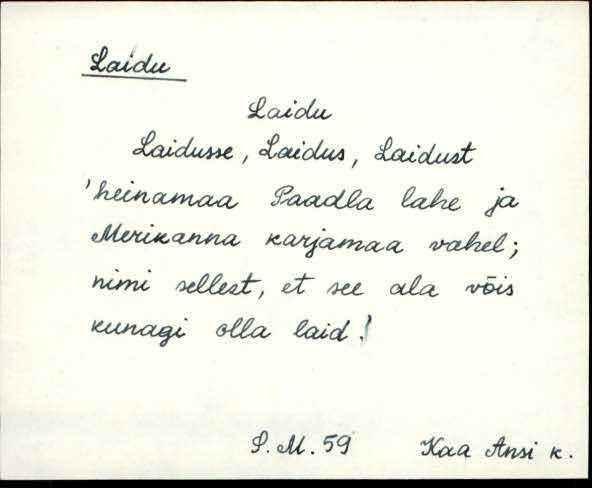 Laidu
Laidu
Laidusse, Laidus, Laidust
'heinamaa Paadla lahe ja
Merikanna karjamaa vahel;
nimi sellest, et see ala võis
kunagi olla laid!
S. M. 59 Kaa Ansi k.